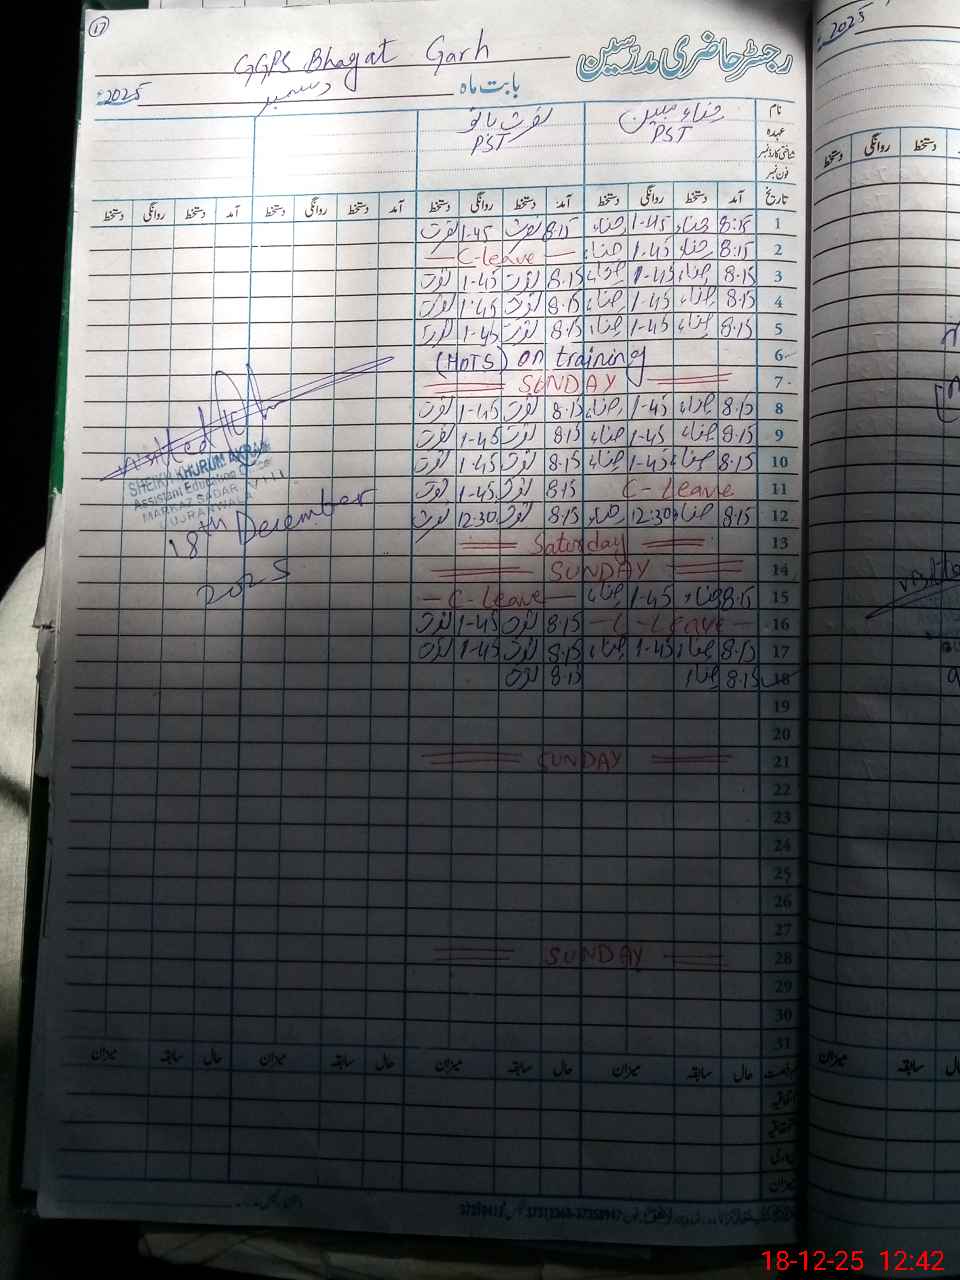 17
GGPS Bhagat Garh رجسٹر حاضری مدرسین
بابت ماہ دسمبر 2025ء
نام حناء مبین نصرت بانو
عہدہ PST PST
شناختی کارڈ نمبر
فون نمبر
تاریخ آمد دستخط روانگی دستخط آمد دستخط روانگی دستخط آمد دستخط روانگی دستخط آمد دستخط روانگی دستخط
1 8:15 حناء 1-45 حناء 8:15 نصرت 1-45 نصرت
2 8:15 حناء 1-45 حناء — C-leave —
3 8.15 حناء 1-45 حناء 8.15 نصرت 1-45 نصرت
4 8.15 حناء 1-45 حناء 8.15 نصرت 1-45 نصرت
5 8.15 حناء 1-45 حناء 8.15 نصرت 1-45 نصرت
6 (HOTS) on training
7 SUNDAY
8 8.15 حناء 1-45 حناء 8.15 نصرت 1-45 نصرت
9 8.15 حناء 1-45 حناء 8.15 نصرت 1-45 نصرت
10 8.15 حناء 1-45 حناء 8.15 نصرت 1-45 نصرت
11 C-Leave 8.15 نصرت 1-45 نصرت
12 8.15 حناء 12:30 حناء 8.15 نصرت 12:30 نصرت
13 Saturday
14 SUNDAY
15 8.15 حناء 1-45 حناء — C-Leave —
16 — C-Leave — 8.15 نصرت 1-45 نصرت
17 8.15 حناء 1-45 حناء 8.15 نصرت 1-45 نصرت
18 8.15 حناء 8.15 نصرت
19
20
21 SUNDAY
22
23
24
25
26
27
28 SUNDAY
29
30
31
رخصت حال سابقہ میزان حال سابقہ میزان حال سابقہ میزان حال سابقہ میزان
اتفاقیہ
میزان
Visited
SHEIKH KHURUM AKRAM
Assistant Education Officer
MARKAZ SADAR VIII
GUJRANWALA
18th December
2025
2025ء
دستخط روانگی دستخط
میزان سابقہ حال
18-12-25 12:42